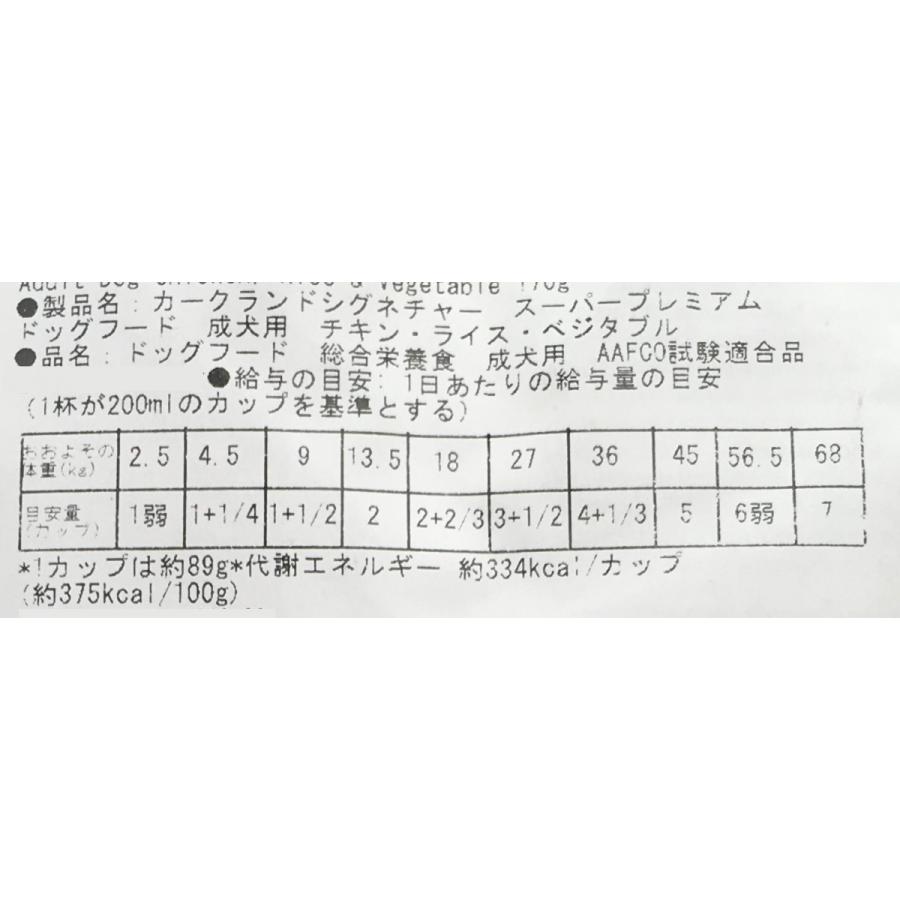 ●製品名:カークランドシグネチャー スーパープレミアム
ドッグフード 成犬用 チキン・ライス・ベジタブル
●品名:ドッグフード 総合栄養食 成犬用 AAFCO試験適合品
●給与の目安:1日あたりの給与量の目安
(1杯が200mlのカップを基準とする)
おおよその体重(kg) 2.5 4.5 9 13.5 18 27 36 45 56.5 68
目安量(カップ) 1弱 1+1/4 1+1/2 2 2+2/3 3+1/2 4+1/3 5 6弱 7
*1カップは約89g*代謝エネルギー 約334kcal/カップ
(約375kcal/100g)